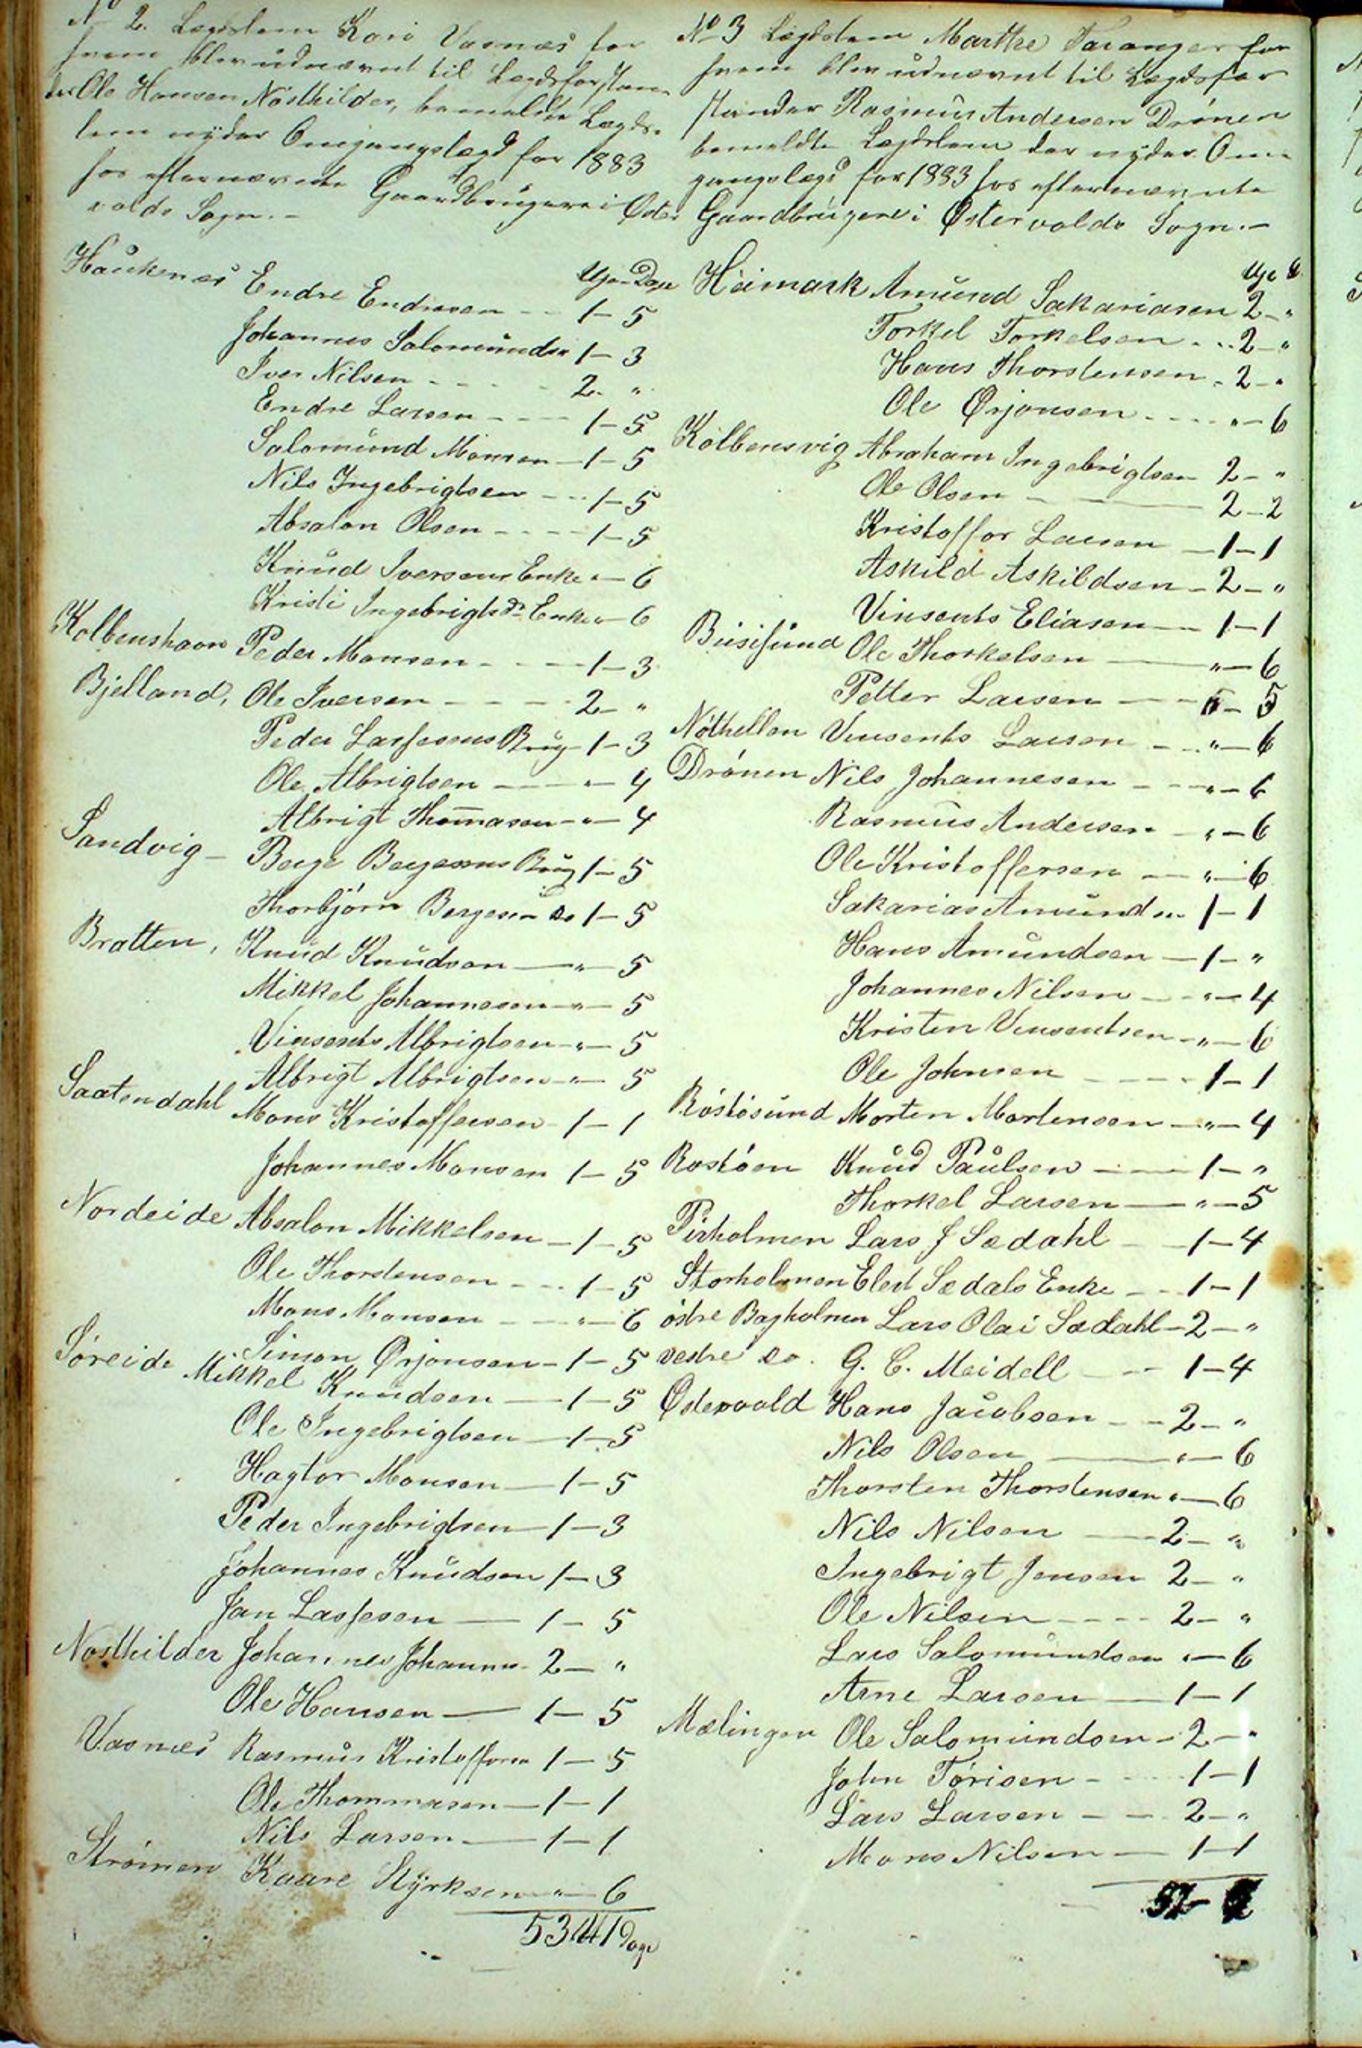 No 2. Lægdslem Kari Vasnæs for
hvem blev udnævnt til Lægdsforstan-
der Ole Hansen Nösthilder, bemeldte Lægds-
lem nyder Omgangslægd for 1883
hos efternævnte Gaardbrugere i Oster
volds Sogn. -
Uger Dage
Haukenæs Endre Endresen - - 1 - 5
Johannes Salomundsn 1 - 3
Iver Nilsen - - - - 2 - "
Endre Larsen - - - 1 - 5
Salomund Monsen - 1 - 5
Nils Ingebrigtsen - - 1 - 5
Absalon Olsen - - - - 1 - 5
Knud Iversens Enke " - 6
Kristi Ingebrigtsdr Enke " - 6
Kolbenshavn Peder Monsen - - - - 1 - 3
Bjelland, Ole Iversen - - - - 2 - "
Peder Lassesens Brug 1 - 3
Ole Albrigtsen - - - " - 4
Albrigt Thomasen - " - 4
Sandvig - Berge Bergesens Brug 1 - 5
Thorbjörn Bergesen do 1 - 5
Bratten, Knud Knudsen - " - 5
Mikkel Johannesen - " - 5
Vinsents Albrigtsen - " - 5
Albrigt Albrigtsen - " - 5
Saatendahl Mons Kristoffersen 1 - 1
Johannes Monsen 1 - 5
Nordeide Absalon Mikkelsen - 1 - 5
Ole Thorstensen - - 1 - 5
Mons Monsen - - - " - 6
Söreide Simon Ørjonsen - 1 - 5
Mikkel Knudsen - 1 - 5
Ole Ingebrigtsen - 1 - 5
Hagtor Monsen - 1 - 5
Peder Ingebrigtsen - 1 - 3
Johannes Knudsen 1 - 3
Jan Lassesen - 1 - 5
Nosthilder Johannes Johanns - 2 - "
Ole Hansen - 1 - 5
Vasnæs Rasmus Kristoffersn 1 - 5
Ole Thommasen - 1 - 1
Nils Larsen - 1 - 1
Strömen Kaare Styrksen - " - 6
No 3 Lægdslem Marthe Taranger for
hvem blev udnævnt til Lægdsfor
stander Rasmus Andersen Drönen
bemeldte Lægdslem der nyder Om-
gangslægd for 1883 hos efternævnte
Gaardbrugere i Østervolds Sogn. -
Höimark Amund Sakariasen 2 - "
Torkel Torkelsen - - 2 - "
Hans Thorstensen - 2 - "
Ole Ørjonsen - - - - " - 6
Kolbensvig Abraham Ingebrigtsen 2 - "
Ole Olsen - 2 - 2
Kristoffor Larsen - 1 - 1
Askild Askildsen - 2 - "
Vinsents Eliasen - 1 - 1
Busesund Ole Thorkelsen - " - 6
Petter Larsen - - 5
Nöthellen Vinsents Larsen - - " - 6
Drönen Nils Johannesen - - " - 6
Rasmus Andersen - " - 6
Ole Kristoffersen - " - 6
Sakarias Amundsn 1 - 1
Hans Amundsen - 1 - "
Johannes Nilsen - - " - 4
Kristen Vinsentsen - " - 6
Ole Johnsen - - - 1 - 1
Röstösund Morten Mortensen - " - 4
Rostöen Knud Paulsen - - 1 - "
Thorkel Larsen - " - 5
Pirholmen Lars J Sædahl - 1 - 4
Storholmen Elert Sædals Enke - - 1 - 1
östre Bagholmen Lars Olai Sædahl - 2 - "
vestre do. G. C. Meidell - - 1 - 4
Østervold Hans Jacobsen - - 2 - "
Nils Olsen - " - 6
Thorsten Thorstensen " - 6
Nils Nilsen - 2 - "
Ingebrigt Jensen 2 - "
Ole Nilsen - - - - 2 - "
Lars Salomundsen " - 6
Arne Larsen - 1 - 1
Mælingen Ole Salomundsen - 2 - "
John Törisen - - - 1 - 1
Lars Larsen - - 2 - "
Mons Nilsen - 1 - 1